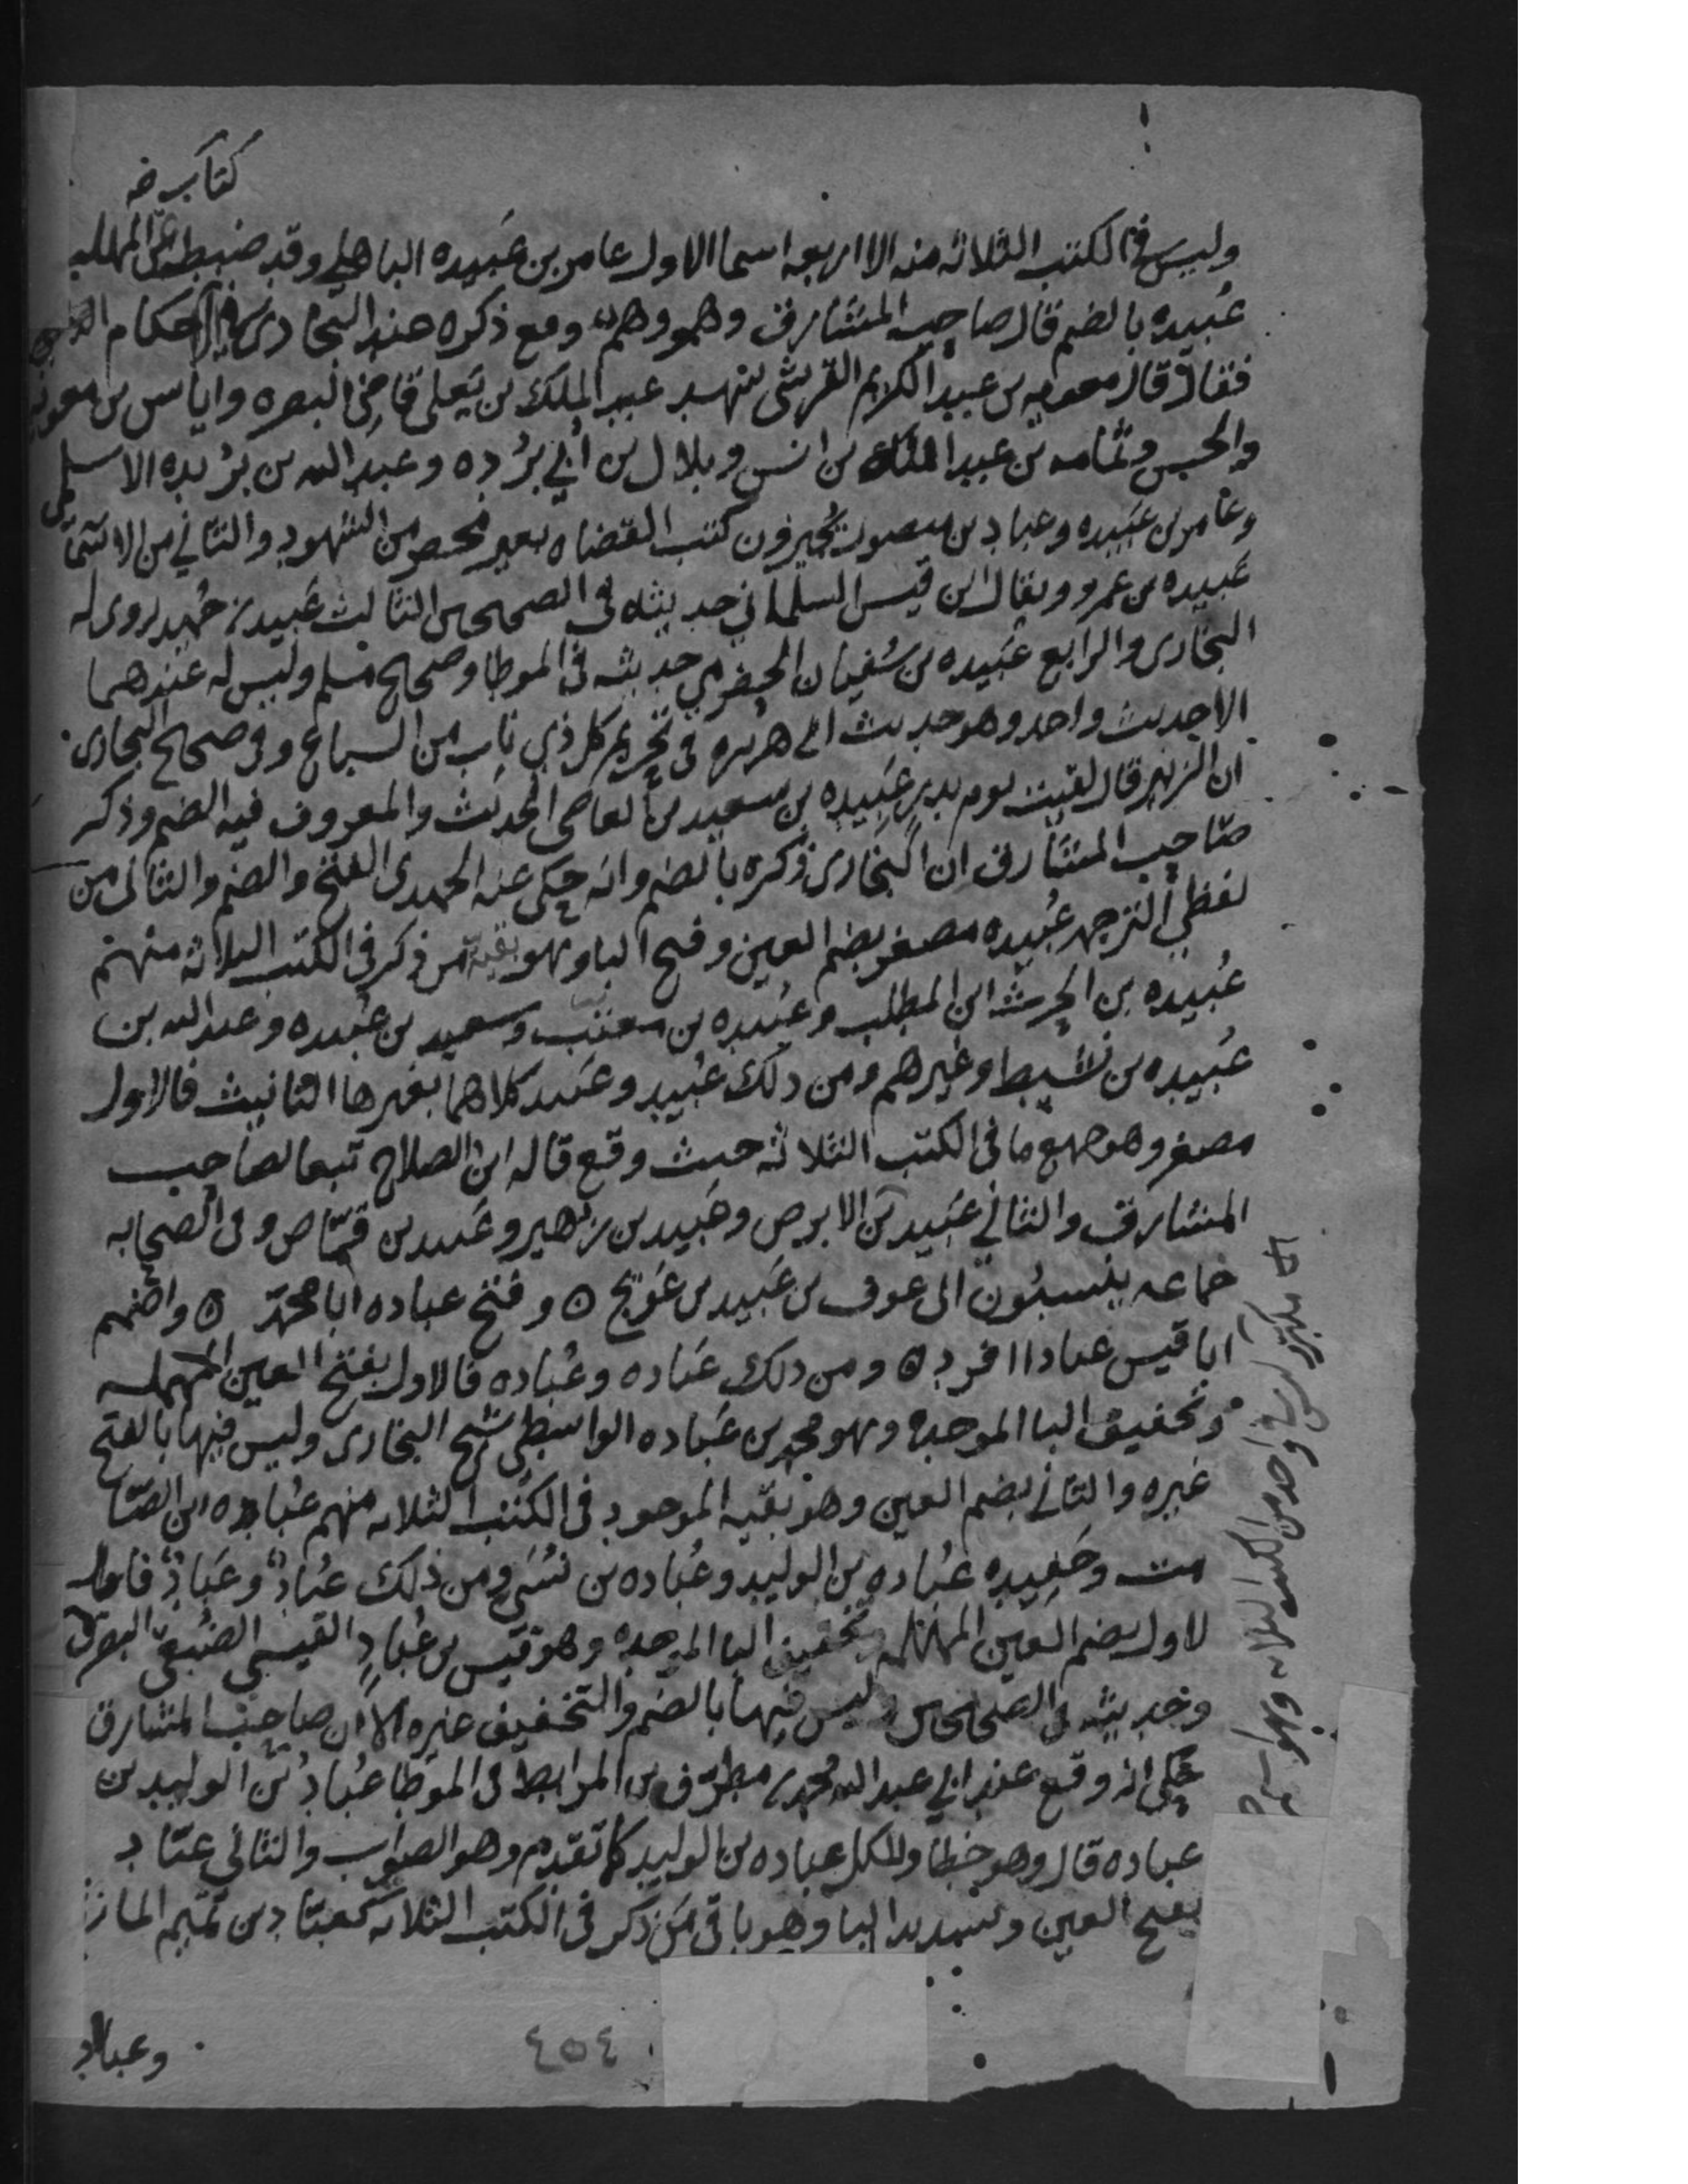 كتاب
وليس في الكتب الثلاثه منه الا اربعه اسما الاول عامر بن عَبيده الباهلي وقد ضبط المهلب
عُبيده بالضم قال صاحب المشارق وهو وهم ومع ذكره عند البخاري في الاحكام
فقال قال معويه بن عبد الكريم القرشي شهدت عبد الملك بن يَعلى قاضي البصره واياس بن معويه
والحسن وثمامه بن عبد الله بن انس وبلال بن أبي بُرده وعبد الله بن بُريده الاسلمي
وعامر بن عَبيده وعباد بن منصور يُجيزون كتب القضاه بغير محضر من الشهود والثاني من الاسما
عَبيده بن عمرو ويقال ابن قيس السلماني حديثه في الصحيحين الثالث عَبيده بن حُميد روى له
البخاري والرابع عَبيده بن سُفيان الحضرمي حديثه في الموطا وصحيح مسلم وليس له عندهما
الا حديث واحد وهو حديث ابي هريره في تحريم كل ذي ناب من السباع وفي صحيح البخاري
ان الزبير قال لقيت يوم بدر عَبيده بن سعيد بن العاصي الحديث والمعروف فيه الضم وذكر
صاحب المشارق ان البخاري ذكره بالضم وانه حكي عنه الحميدي الفتح والضم والثاني من
لفظي الترجمه عُبيده مصغر بضم العين وفتح البا وهو بقيّة من ذكر في الكتب الثلاثه منهم
عُبيده بن الحرث ابن المطلب وعُبيده بن معتب وسعيد بن عُبيده وعبد الله بن
عُبيده بن نشيط وغيرهم ومن ذلك عُبيد وعَبيد كلاهما بغير ها التانيث فالاول
مصغر وهو جميع ما في الكتب الثلاثه حيث وقع قاله ابن الصلاح تبعا لصاحب
المشارق والثاني عَبيد بن الابرص وعَبيد بن زهير وعَبيد بن قمّاص وفي الصحابه
جماعه ينسبُون الى عوف بن عَبيد بن عَوِيج ه وفتح عباده ابا محمّد ه واضمم
ابا قيس عبادا افرد ه ومن ذلك عَباده وعُباده فالاول بفتح العين المهمله
وتخفيف البا الموحده وهو محمد بن عَباده الواسطي شيخ البخاري وليس فيها بالفتح
غيره والثاني بضم العين وهو بقيه الموجود في الكتب الثلاثه منهم عُباده ابن الصّا
مت وحَفِيده عُباده بن الوليد وعُباده بن نُسَي ومن ذلك عُبادٌ وعَبّادٌ فا
لاول بضم العين المهمله وتخفيف البا الموحده وهو قيس بن عُبادٍ القيسي الضُبَعي البصري
وحديثه في الصحيحين وليس فيها بالضم والتخفيف غيره الا ان صاحب المشارق
حكى انه وقع عند ابي عبد الله محمد بن مطرّف بن المرابط في الموطا عُبادُ بن الوليد بن
عباده قال وهو خطا ولكل عباده بن الوليد كما تقدم وهو الصواب والثاني عبّاد
بفتح العين وتشديد البا وهو باقي مَن ذكر في الكتب الثلاثه كعبّاد بن تميم المازني
وعباد
٤٥٤
واحد من الكتب الثلاثه وهو